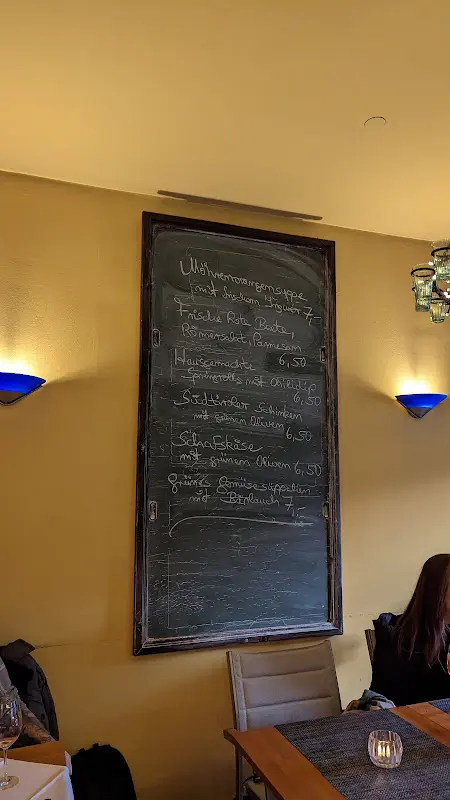 Möhrenorangensuppe
mit frischem Ingwer 7,-
Frische Rote Beete,
Römersalat, Parmesan
6,50
Hausgemachte
Springrolls mit Chilidip
6,50
Südtiroler Schinken
mit grünen Oliven
6,50
Schafskäse
mit grünen Oliven 6,50
Grünes Gemüsesüppchen
mit Bärlauch 7,-